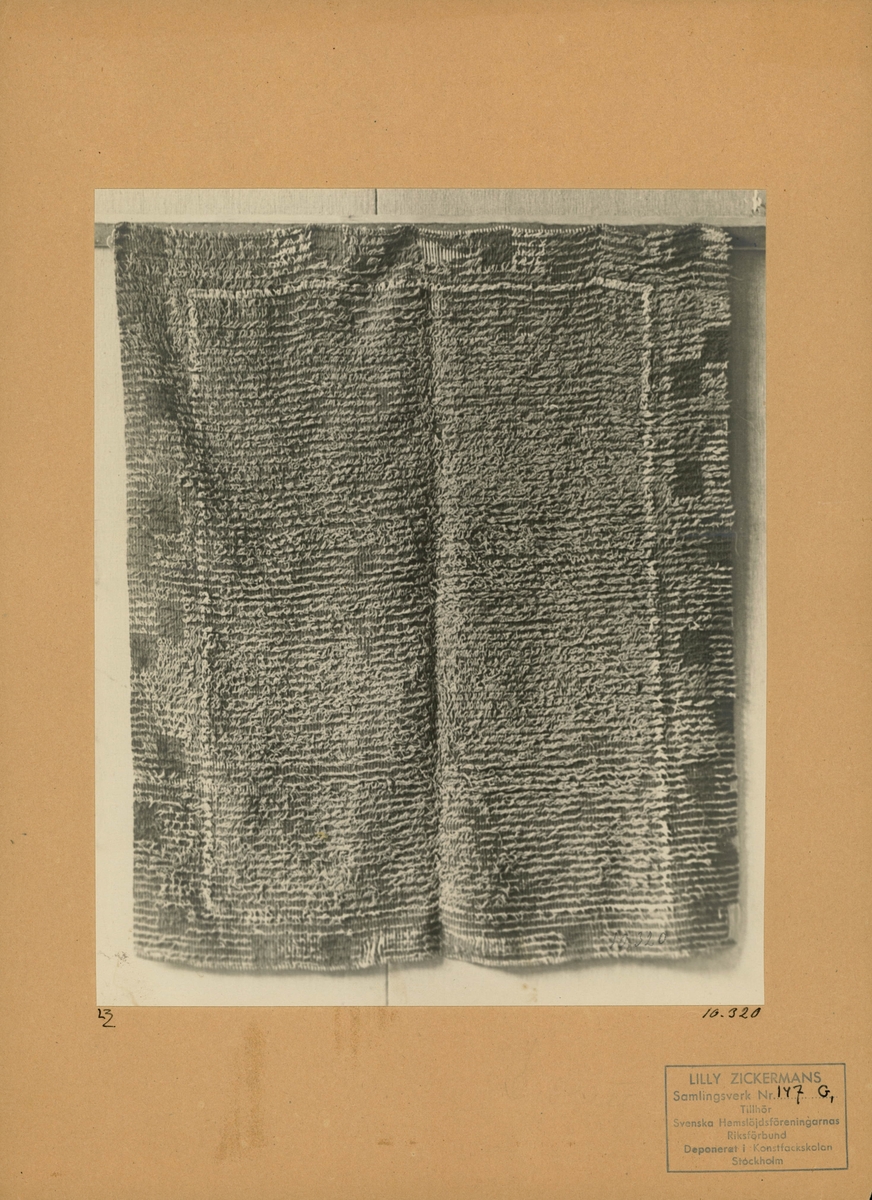 LZ
10.320
LILLY ZICKERMANS
Samlingsverk Nr. 147 G,
Tillhör
Svenska Hemslöjdsföreningarnas
Riksförbund
Deponerat i Konstfackskolan
Stockholm